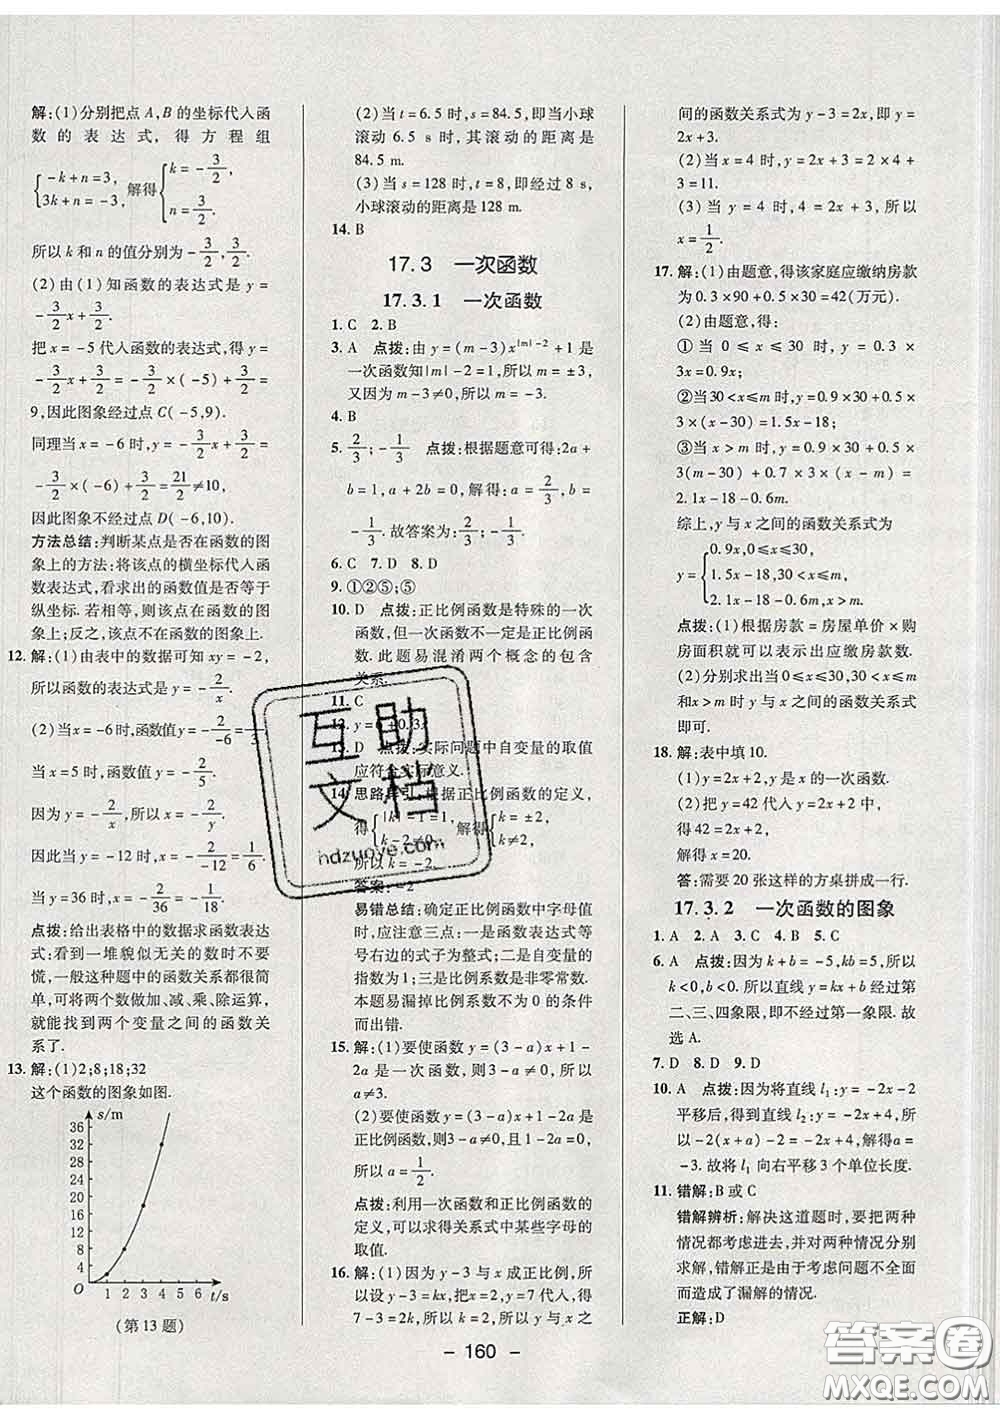 解:(1)分别把点 A,B 的坐标代入函
数的表达式,得方程组
{-k+n=3, 3k+n=-3, 解得{k=-3/2, n=3/2.
所以 k 和 n 的值分别为-3/2,3/2.
(2)由(1)知函数的表达式是 y=
-3/2x+3/2.
把 x=-5代入函数的表达式,得 y=
-3/2x+3/2=-3/2×(-5)+3/2=
9,因此图象经过点 C(-5,9).
同理当 x=-6时,y=-3/2x+3/2=
-3/2×(-6)+3/2=21/2≠10,
因此图象不经过点 D(-6,10).
方法总结:判断某点是否在函数的图
象上的方法:将该点的横坐标代入函
数表达式,看求出的函数值是否等于
纵坐标.若相等,则该点在函数的图
象上;反之,该点不在函数的图象上.
12.解:(1)由表中的数据可知 xy=-2,
所以函数的表达式是 y=-2/x.
(2)当 x=-6时,函数值 y=-2/-6=
当 x=5时,函数值 y=-2/5.
因为 y=-2/x,所以
因此当 y=-12时,x=-2/-12=1/6.
当 y=36时,x=-2/36=
点拨:给出表格中的数据求函数表达
式;看到一堆貌似无关的数时不要
慌,一般这种题中的函数关系都很简
单,可将两个数做加、减、乘、除运算,
就能找到两个变量之间的函数关
系了.
13.解:(1)2;8;18;32
这个函数的图象如图.
s/m
36
32
28
24
20
16
12
8
4
O 1 2 3 4 5 6 t/s
(第13题)
(2)当 t=6.5时,s=84.5,即当小球
滚动 6.5 s 时,其滚动的距离是
84.5 m.
(3)当 s=128时,t=8,即经过 8 s,
小球滚动的距离是128 m.
14.B
17.3 一次函数
17.3.1 一次函数
1.C 2.B
3.A 点拨:由 y=(m-3)x^|m|-2+1是
一次函数知|m|-2=1,所以 m=±3,
又因为 m-3≠0,所以 m=-3.
4.B
5.2/3;-1/3 点拨:根据题意可得:2a+
b=1,a+2b=0,解得:a=2/3,b=
-1/3.故答案为:2/3;-1/3.
6.C 7.D 8.D
9.①②⑤;⑤
10.D 点拨:正比例函数是特殊的一次
函数,但一次函数不一定是正比例函
数.此题易混淆两个概念的包含
关系.
11.C
12.y=6+0.3x
13.D 点拨:实际问题中自变量的取值
应符合实际意义.
14.思路导引:根据正比例函数的定义,
得{|k|-1=1, k-2≠0, 解得{k=±2, k≠2,
所以 k=-2.
答案:-2
易错总结:确定正比例函数中字母值
时,应注意三点:一是函数表达式等
号右边的式子为整式;二是自变量的
指数为1;三是比例系数是非零常数.
本题易漏掉比例系数不为 0 的条件
而出错.
15.解:(1)要使函数 y=(3-a)x+1-
2a是一次函数,则3-a≠0,所以 a
≠3.
(2)要使函数 y=(3-a)x+1-2a是
正比例函数,则3-a≠0,1-2a=0,
所以 a=1/2.
点拨:利用一次函数和正比例函数的
定义,可以求得关系式中某些字母的
取值.
16.解:(1)因为 y-3与 x 成正比例,所
以设 y-3=kx,把 x=2,y=7代入,得
7-3=2k,所以 k=2,所以 y与 x 之
间的函数关系式为 y-3=2x,即 y=
2x+3.
(2)当 x=4 时,y=2x+3=2×4+
3=11.
(3)当 y=4 时,4=2x+3,所以
x=1/2.
17.解:(1)由题意,得该家庭应缴纳房款
为0.3×90+0.5×30=42(万元).
(2)由题意,得:
①当 0≤x≤30 时,y=0.3×
3x=0.9x;
②当30<x≤m时,y=0.9×30+0.5
×3×(x-30)=1.5x-18;
③当 x>m 时,y=0.9×30+0.5×3
×(m-30)+0.7×3×(x-m)=
2.1x-18-0.6m.
综上,y与 x 之间的函数关系式为
y={0.9x,0≤x≤30, 1.5x-18,30<x≤m, 2.1x-18-0.6m,x>m.
点拨:(1)根据房款=房屋单价×购
房面积就可以表示出应缴房款.
(2)分别求出当 0≤x≤30,30<x≤m
和x>m时 y 与 x 之间的函数关系式
即可.
18.解:表中填10.
(1)y=2x+2,y是 x 的一次函数.
(2)把 y=42 代入 y=2x+2 中,
得 42=2x+2,
解得 x=20.
答:需要 20 张这样的方桌拼成一行.
17.3.2 一次函数的图象
1.A 2.A 3.C 4.B 5.C
6.A 点拨:因为 k+b=-5,kb=5,所以
k<0,b<0.所以直线 y=kx+b 经过第
二、三、四象限,即不经过第一象限.故
选 A.
7.D 8.D 9.D
10.A 点拨:因为将直线 l₁:y=-2x-2
平移后,得到直线 l₂:y=-2x+4,所
以-2(x+a)-2=-2x+4,解得 a=
-3.故将 l₁向右平移3个单位长度.
11.错解:B 或 C
错解辨析:解决这道题时,要把两种
情况都考虑进去,并对两种情况分别
求解,错解正是由于考虑问题不全面
而造成了漏解的情况.
正解:D
- 160 -
互助
文档
hdzuoye.com
答案圈
MXQE.COM